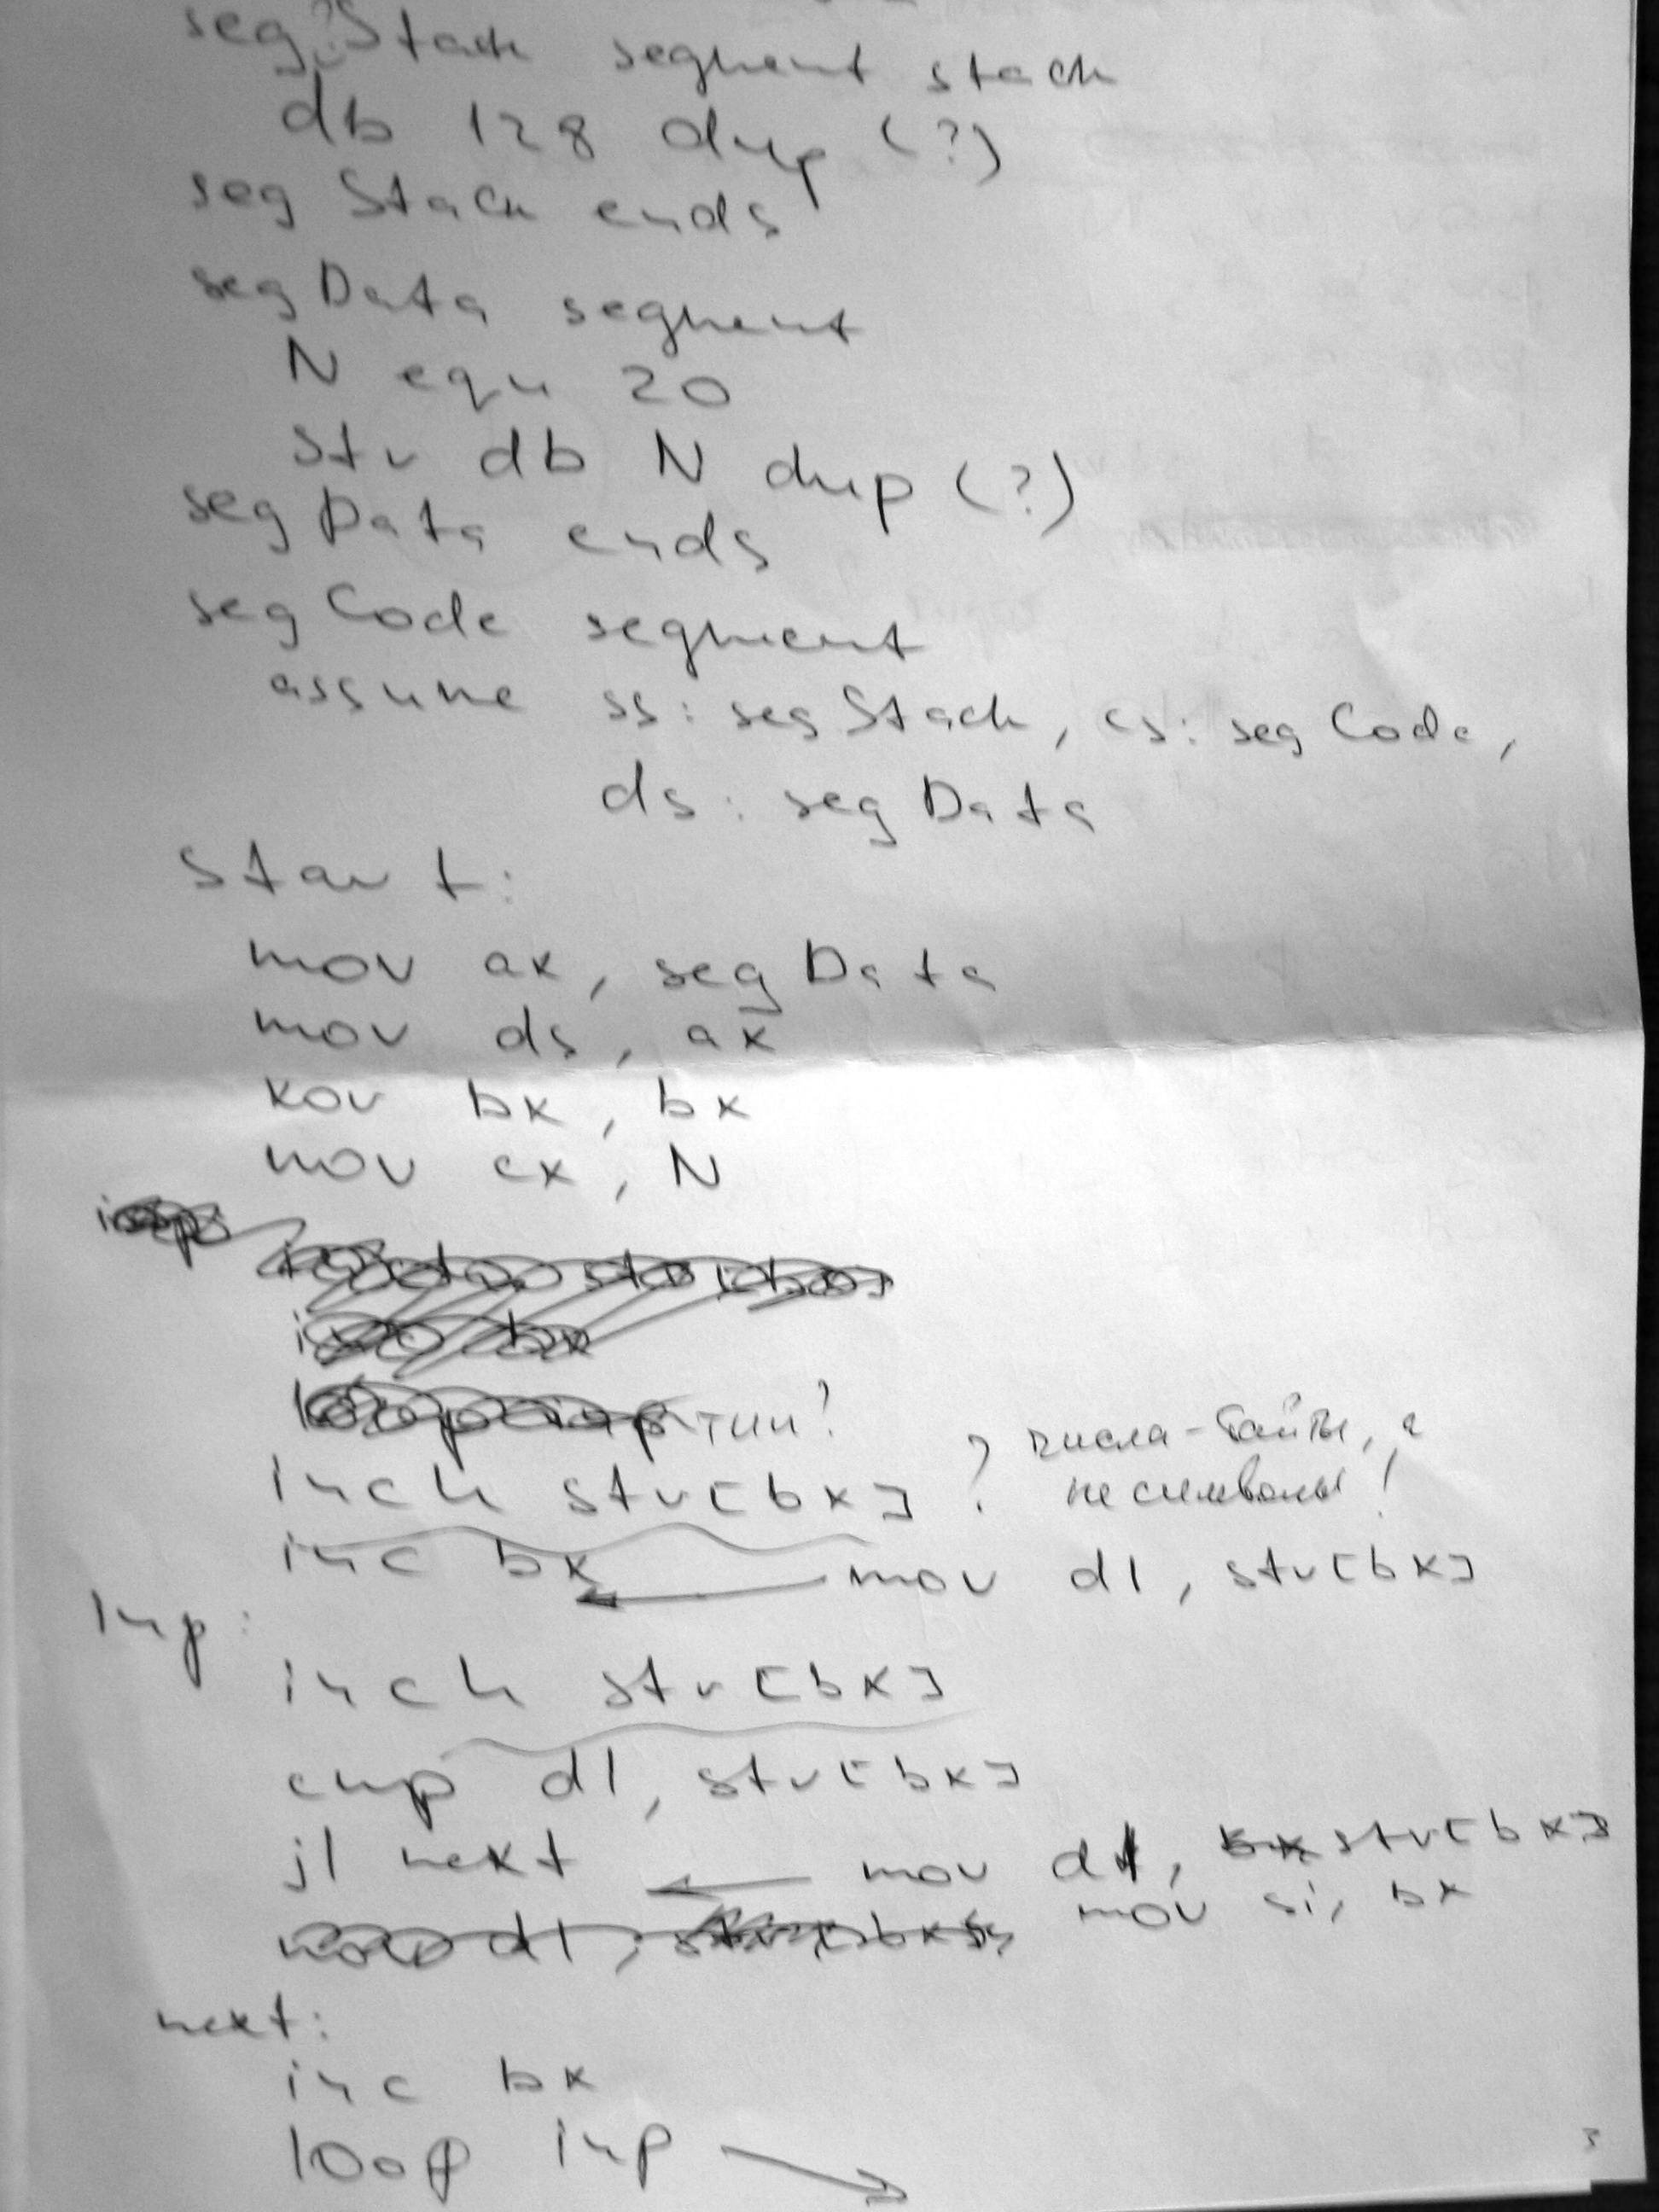 segStack segment stack
db 128 dup (?)
segStack ends
segData segment
N equ 20
str db N dup (?)
segData ends
segCode segment
assume ss: segStack, cs: segCode,
ds: segData
start:
mov ax, segData
mov ds, ax
xor bx, bx
mov cx, N
тип?
inch str[bx] ? числа - байты, а
не символы!
inc bx mov dl, str[bx]
inp:
inch str[bx]
cmp dl, str[bx]
jl next mov dl, str[bx]
mov si, bx
next:
inc bx
loop inp